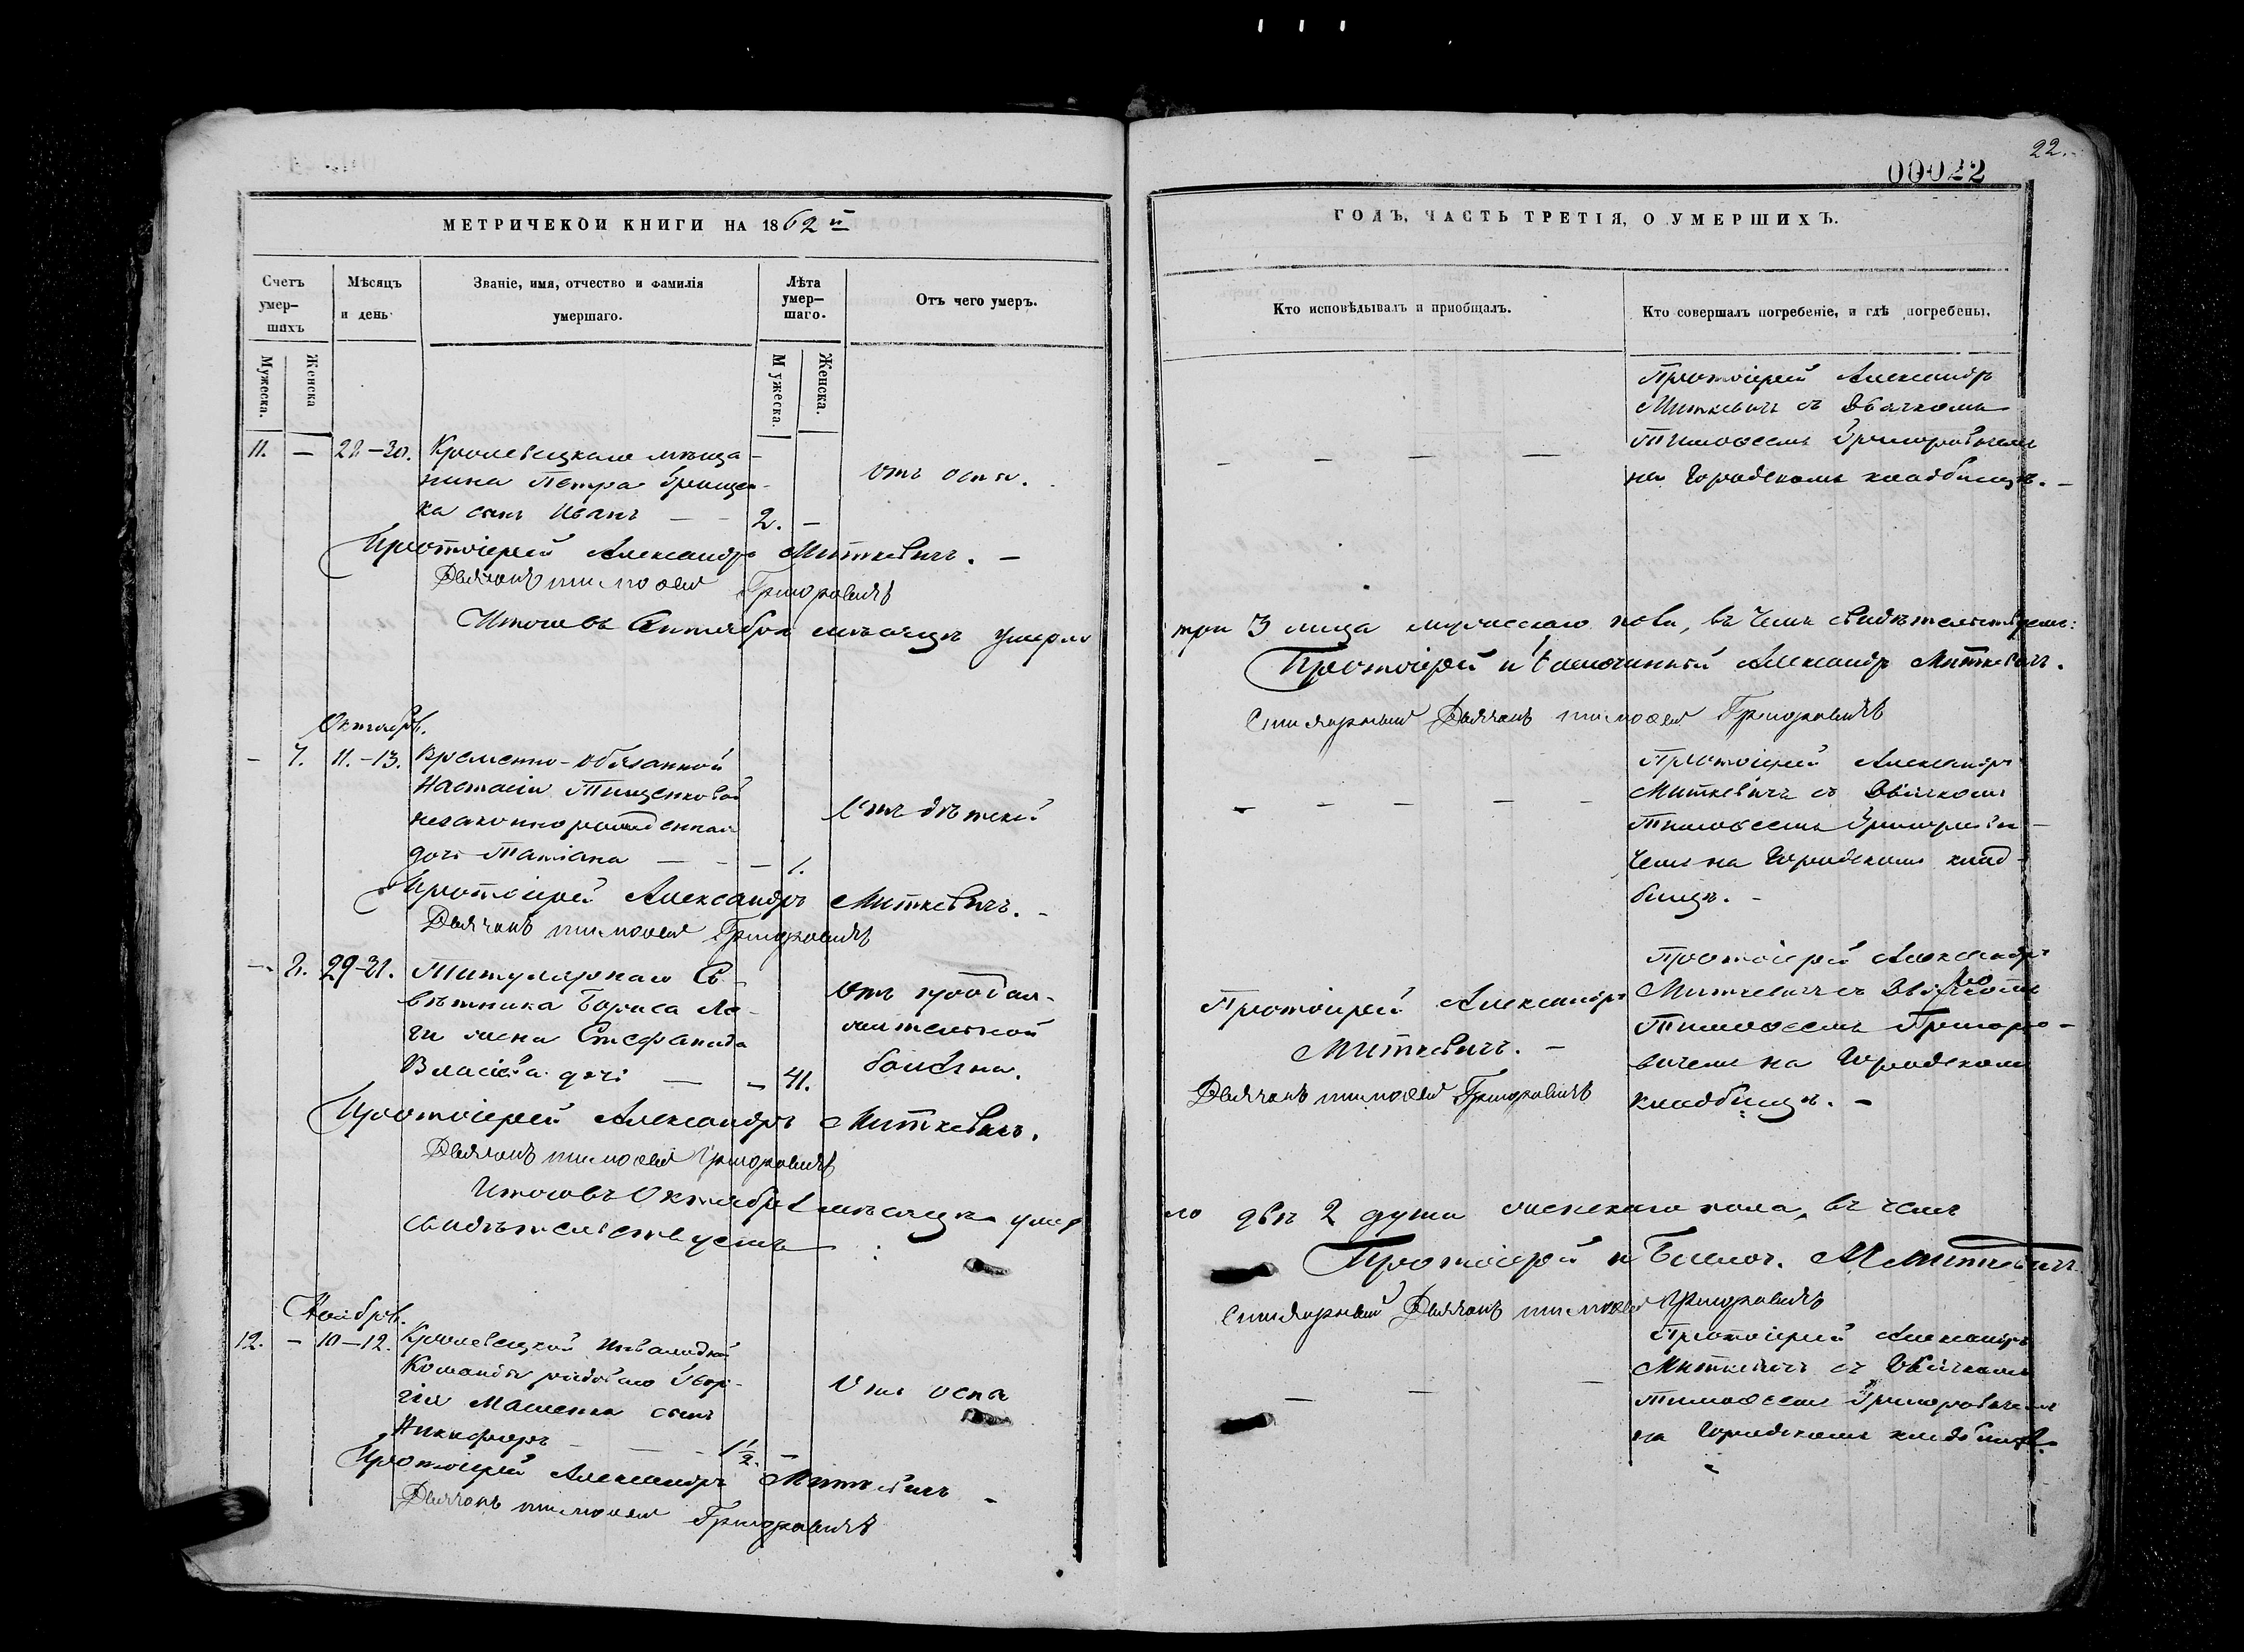 22.
00022
МЕТРИЧЕКОЙ КНИГИ НА 1862 й
ГОДЪ, ЧАСТЬ ТРЕТІЯ, О УМЕРШИХЪ.
Счетъ умер-шихъ
Мѣсяцъ и день
Званіе, имя, отчество и фамилія умершаго.
Лѣта умер-шаго.
Отъ чего умеръ.
Мужеска.
Женска
Мужеска.
Женска.
Кто исповѣдывалъ и приобщалъ.
Кто совершалъ погребеніе, и гдѣ погребены.
11. — 28-30. Кролевецкаго мѣща-
нина Петра Грищен-
ка сынъ Иванъ — — 2. —
отъ оспы.
Протоіерей Александръ
Миткевичъ съ Дьячкомъ
Тимоѳеемъ Григоровичемъ
на Городскомъ кладбищѣ. —
Протоіерей Александръ Миткевичъ. —
Дьячокъ тимоѳей Григоровичъ
Итого въ Сентябрѣ мѣсяцѣ умерло
три 3 лица мужескаго пола, въ чемъ свидѣтельствуемъ:
Протоіерей и благочинный Александръ Миткевичъ.
Стихарный Дьячокъ тимоѳей Григоровичъ
Октябрь.
— 7. 11.-13. Временно-обязанной
Настасіи Тищенковой
незаконнорожденная
дочь Татіана — — — 1.
отъ дѣтской
Протоіерей Александръ
Миткевичъ съ Дьячкомъ
Тимоѳеемъ Григорови-
чемъ на Городскомъ клад-
бищѣ. —
Протоіерей Александръ Миткевичъ. —
Дьячокъ тимоѳей Григоровичъ
— 8. 29-31. Титулярнаго Со-
вѣтника Бориса
жена Стефанида
дочь — — 41.
отъ продол-
жительной
болѣзни.
Протоіерей Александръ
Миткевичъ. —
Дьячокъ тимоѳей Григоровичъ
Протоіерей Александръ
Миткевичъ съ Дьячкомъ
Тимоѳеемъ Григоро-
вичемъ на Городскомъ
кладбищѣ. —
Протоіерей Александръ Миткевичъ.
Дьячокъ тимоѳей Григоровичъ
Итого въ Октябрѣ мѣсяцѣ умер
ло двѣ 2 души женскаго пола, въ чемъ
свидѣтельствуемъ:
Протоіерей и Благоч. А Миткевичъ
Стихарный Дьячокъ тимоѳей Григоровичъ
Ноябрь.
12. — 10-12. Кролевецкой Инвалидной
Команды рядоваго Геор-
гія сынъ
Никифоръ — — — 1½. —
отъ оспы
Протоіерей Александръ
Миткевичъ съ Дьячкомъ
тимоѳеемъ Григоровичемъ
на Городскомъ кладбищѣ.
Протоіерей Александръ Миткевичъ —
Дьячокъ тимоѳей Григоровичъ